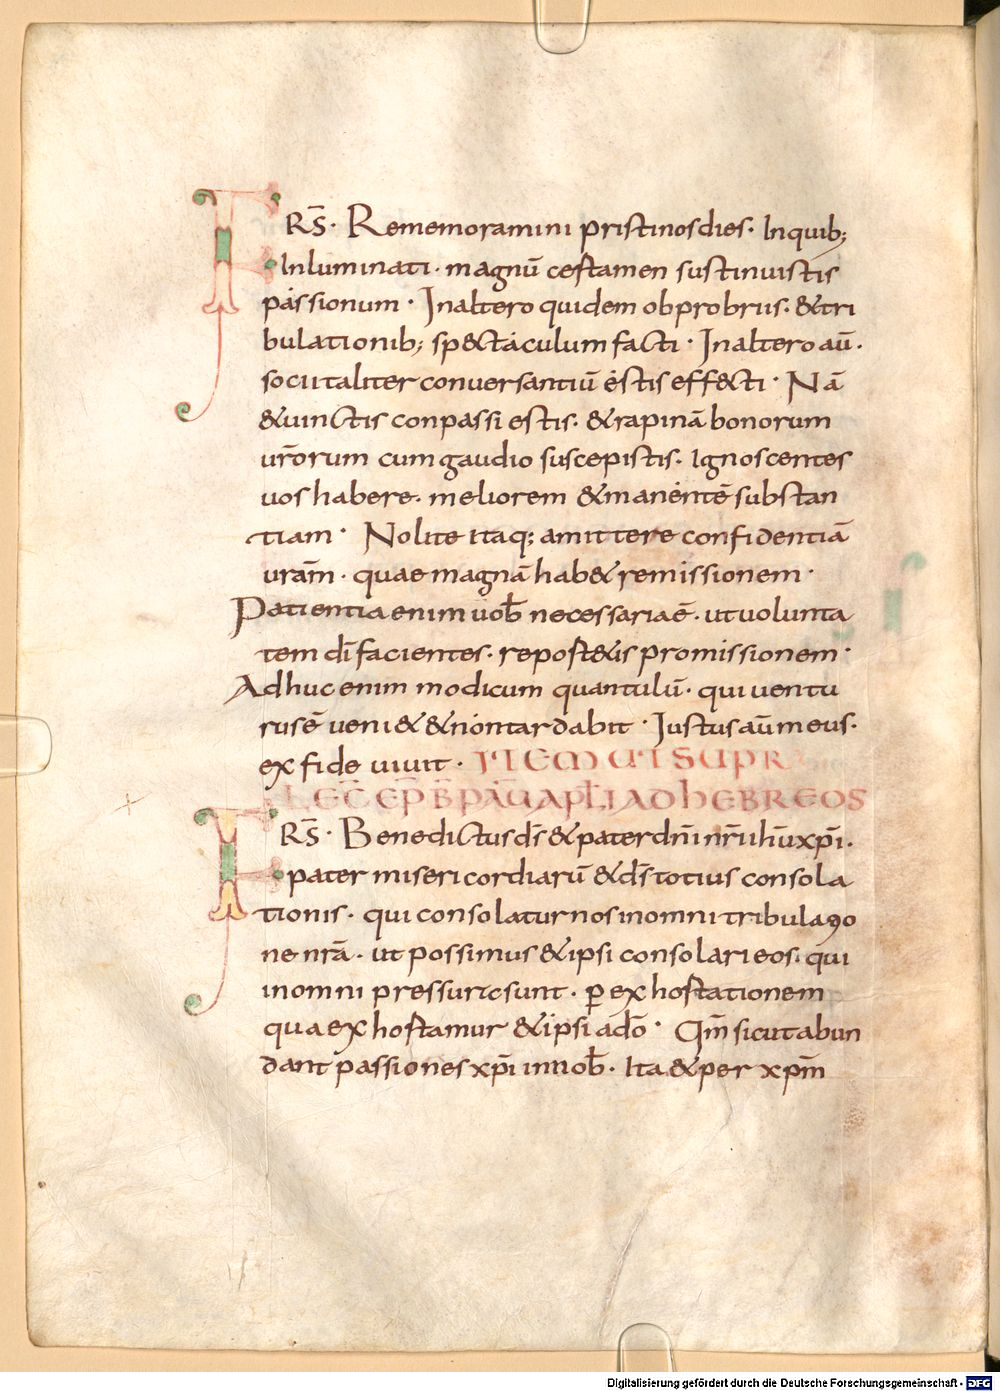 FRS̄· Rememoramini pristinos dies· In quib;
Inluminati· magnū certamen sustinuistis
passionum· In altero quidem obprobriis· & tri
bulationib; spectaculum facti· In altero aū·
socii taliter conversantiū estis effecti· Nā
& uinctis conpassi estis· & rapinā bonorum
ur̄orum cum gaudio suscepistis· Ignoscentes
uos habere· meliorem & manentē substan
tiam· Nolite itaq; amittere confidentiā
urām· quae magnā hab& remissionem·
Patientia enim uob̄ necessaria ē· ut uolunta
tem dī facientes· report&is promissionem·
Adhuc enim modicum quantulū· qui ventu
rus ē ueni& & non tardabit· Iustus aū meus·
ex fide uiuit· ITEM UT SUPR
LEC̄ EP̄ B̄ PAŪ APLĪ AD HEBREOS
FRS̄· Benedictus d̄s & pater dn̄i nr̄i ihū xp̄i·
pater misericordiarū & d̄s totius consola
tionis· qui consolatur nos in omni tribulatio
ne nrā· ut possimus & ipsi consolari eos· qui
in omni pressura sunt· p̄ exhortationem
qua exhortamur & ipsi a dō· Qm̄ sicut abun
dant passiones xp̄i in nob̄· Ita & per xp̄m
Digitalisierung gefördert durch die Deutsche Forschungsgemeinschaft - DFG